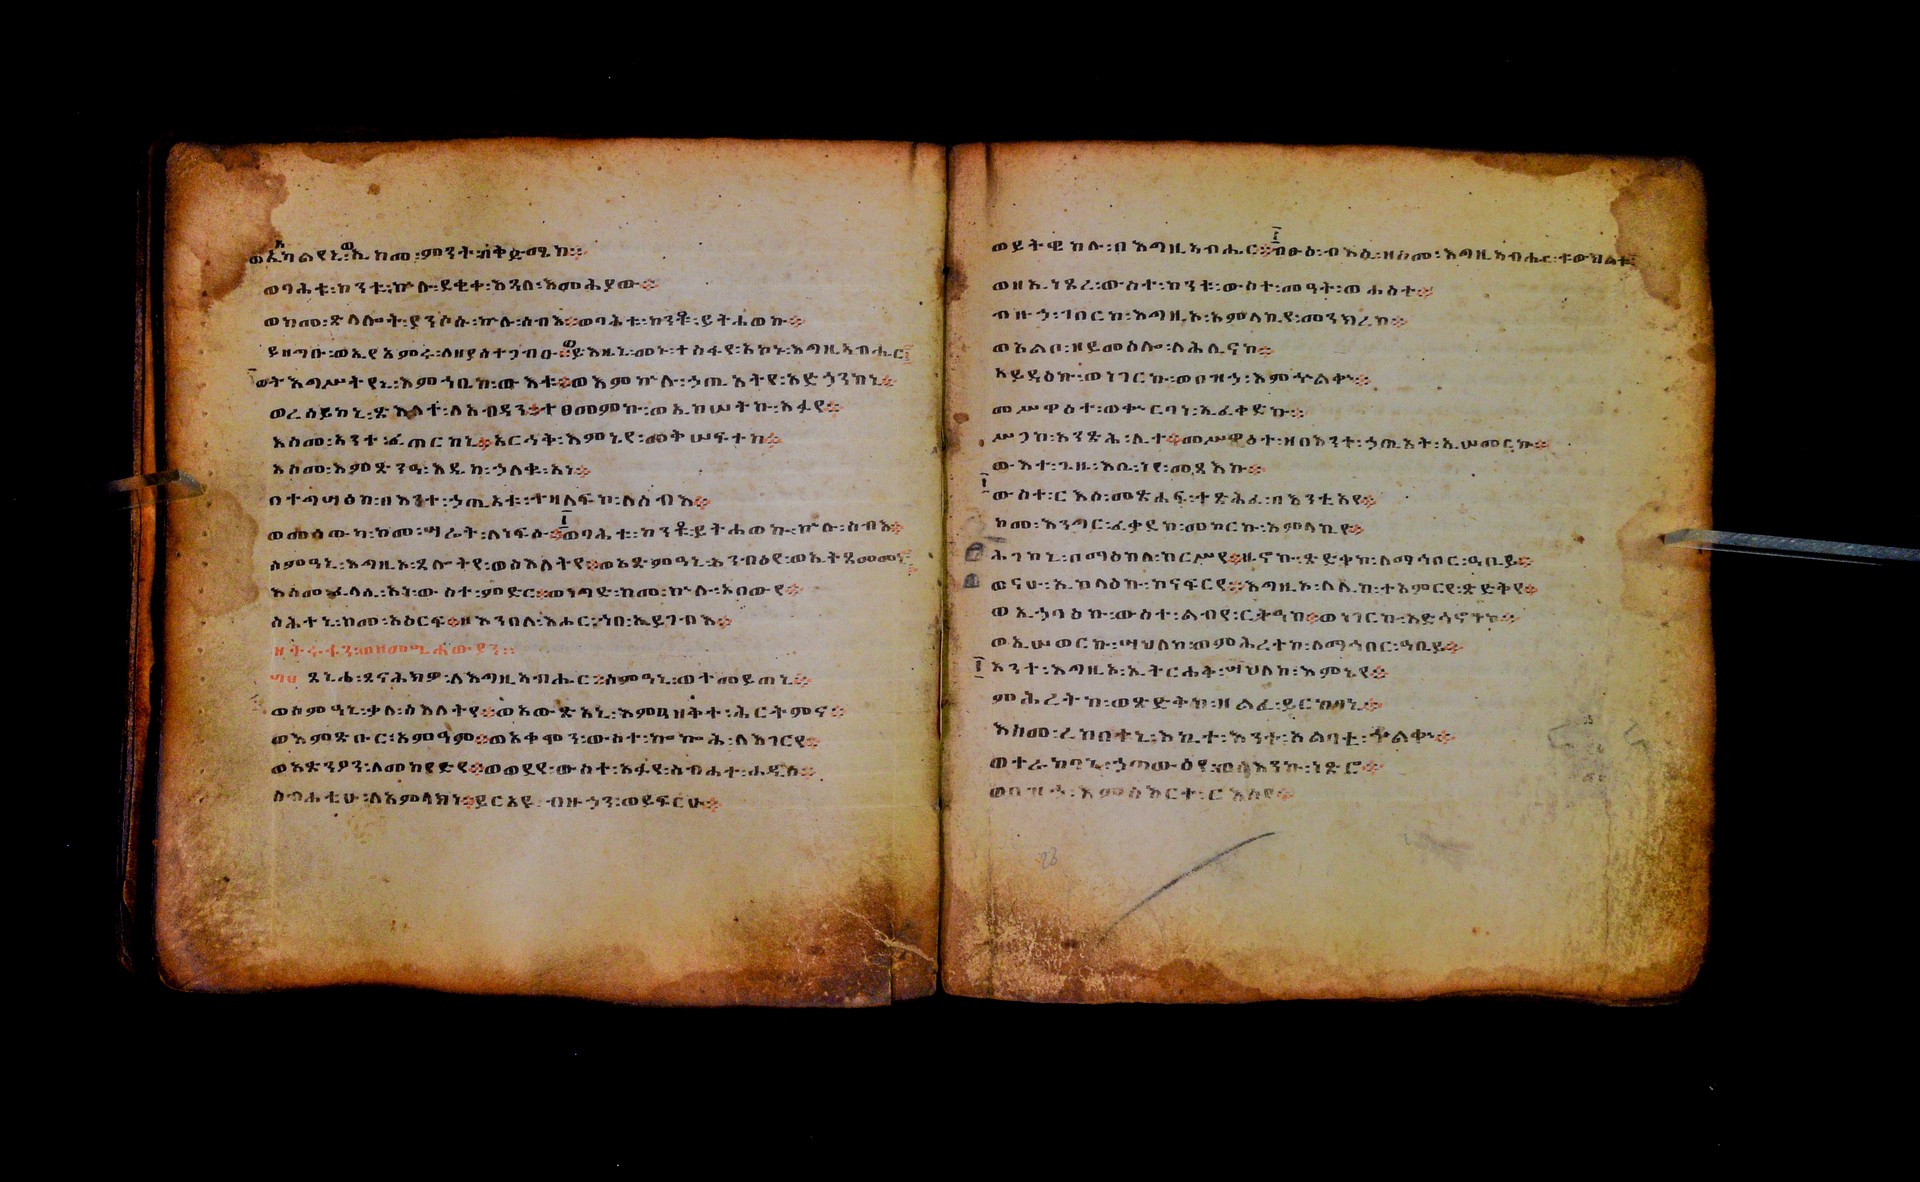 ወአካልየኒ፡ ወኢከመ፡ ምንት፡ ቅድሜከ።
ወባሕቱ፡ ከንቱ፡ ኵሉ፡ ደቂቀ፡ እጓለ፡ እመሕያው።
ወከመ፡ ጽላሎት፡ ያንሶሱ፡ ኵሉ፡ ሰብእ። ወባሕቱ፡ ከንቶ፡ ይትሐወኩ።
ይዘግቡ፡ ወኢየአምሩ፡ ለዘያስተጋብኡ። ወይእዜኒ፡ መኑ፡ ተስፋየ፡ አኮኑ፡ እግዚአብሔር
ወትእግሥትየኒ፡ እምኀቤከ፡ ውእቱ። ወእምኵሉ፡ ኃጢአትየ፡ አድኅነኒ።
ወረሰይከኒ፡ ጽእለተ፡ ለአብዳን። ተፀመምኩ፡ ወኢከሠትኩ፡ አፋየ።
እስመ፡ አንተ፡ ፈጠርከኒ። አርሕቅ፡ እምኔየ፡ መቅሠፍተከ።
እስመ፡ እምጽንዓ፡ እዴከ፡ ኃለቁ፡ አነ።
በተግሣፅከ፡ በእንተ፡ ኃጢአቱ፡ ተዛለፍኮ፡ ለሰብእ።
ወመሰውካ፡ ከመ፡ ሣሬት፡ ለነፍሱ። ወባሕቱ፡ ከንቶ፡ ይትሐወኩ፡ ኵሉ፡ ሰብእ።
ስምዓኒ፡ እግዚኦ፡ ጸሎትየ፡ ወስእለትየ። ወአጽምዓኒ፡ አንብዕየ፡ ወኢትጸመመኒ
እስመ፡ ፈላሲ፡ አነ፡ ውስተ፡ ምድር። ወነግድ፡ ከመ፡ ኵሉ፡ አበውየ።
ስሕተኒ፡ ከመ፡ አዕርፍ። ዘእንበለ፡ እሑር፡ ኀበ፡ ኢይገብእ።
ጸኒሐ፡ ጸናሕክዎ፡ ለእግዚአብሔር። ሰምዓኒ፡ ወተመይጠኒ።
ወሰምዓኒ፡ ቃለ፡ ስእለትየ። ወአውጽአኒ፡ እምዓዘቅተ፡ ሕርትምና።
ወእምጽቡር፡ አምዓም። ወአቀሞን፡ ውስተ፡ ኰኵሕ፡ ለእገርየ።
ወአጽንዖን፡ ለመከየድየ። ወወደየ፡ ውስተ፡ አፉየ፡ ስብሐተ፡ ሐዲሰ።
ስብሐቲሁ፡ ለአምላክነ። ይርአዩ፡ ብዙኃን፡ ወይፍርሁ።
ወይትዌከሉ፡ በእግዚአብሔር። ብፁዕ፡ ብእሲ፡ ዘስመ፡ እግዚአብሔር፡ ትውክልቱ
ወዘኢነጸረ፡ ውስተ፡ ከንቱ፡ ውስተ፡ መዓት፡ ወሐሰት።
ብዙኃ፡ ገበርከ፡ እግዚኦ፡ አምላኪየ፡ መንክረከ።
ወአልቦ፡ ዘይመስሎ፡ ለሕሊናከ።
አይዳዕኩ፡ ወነገርኩ፡ ወበዝኃ፡ እምኍልቍ።
መሥዋዕተ፡ ወቍርባነ፡ ኢፈቀድኩ።
ሥጋከ፡ አንጽሕ፡ ሊተ። መሥዋዕተ፡ ዘበእንተ፡ ኃጢአት፡ ኢሠመርኩ።
ውእተ፡ ጊዜ፡ እቤ፡ ነየ፡ መጻእኩ።
ውስተ፡ ርእሰ፡ መጽሐፍ፡ ተጽሕፈ፡ በእንቲአየ።
ከመ፡ እንግር፡ ፈቃደከ፡ መከርኩ፡ አምላኪየ።
ሕገከኒ፡ በማዕከለ፡ ከርሥየ። ዜኖኩ፡ ጽድቀከ፡ ለማኅበር፡ ዓቢይ።
ወናሁ፡ ኢከላዕኩ፡ ከናፍርየ። እግዚኦ፡ ለሊከ፡ ተአምር፡ ጽድቅየ።
ወኢኃባዕኩ፡ ውስተ፡ ልብየ፡ ርትዓከ። ወነገርኩ፡ አድኅኖተከ።
ወኢሠወርኩ፡ ሣህለከ፡ ወምሕረተከ፡ ለማኅበር፡ ዓቢይ።
አንተ፡ እግዚኦ፡ ኢትርሐቅ፡ ሣህለከ፡ እምኔየ።
ምሕረትከ፡ ወጽድቅከ፡ ዘልፈ፡ ይርከባኒ።
እስመ፡ ረከበተኒ፡ እኪተ፡ እንተ፡ አልባቲ፡ ኍልቍ።
ወተራከባኒ፡ ኃጣውእየ፡ ወስእንኩ፡ ነጽሮ።
ወበዝኃ፡ እምስእርተ፡ ርእስየ።